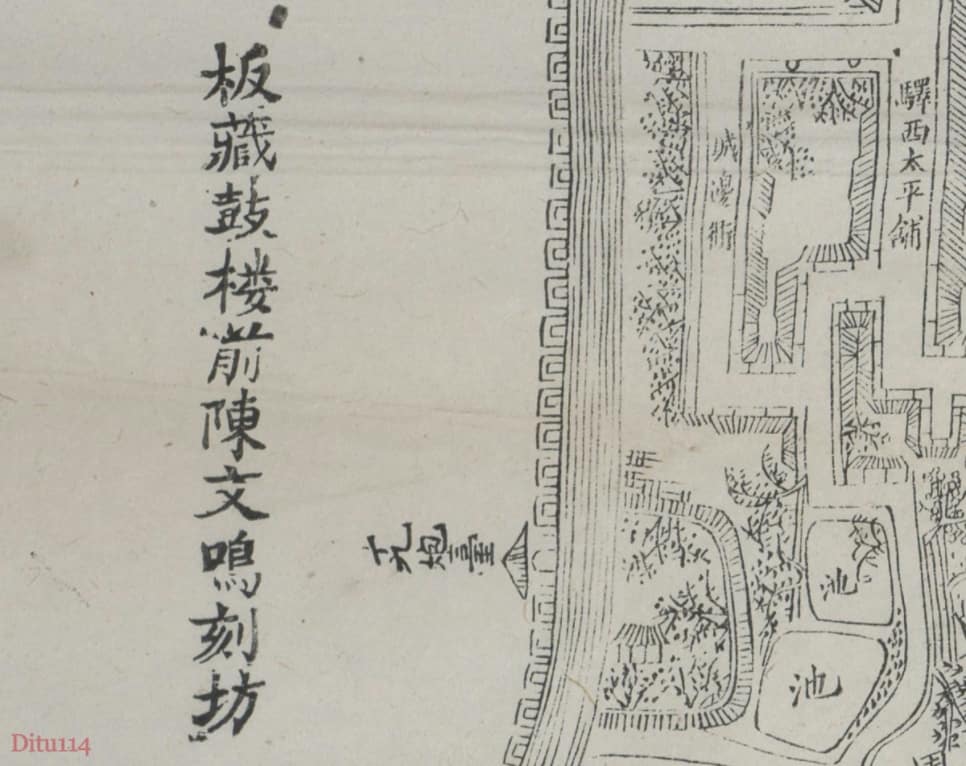 板藏鼓楼前陳文鳴刻坊
驛西太平舖
城邊街
十九炮臺
池
池
Ditu114